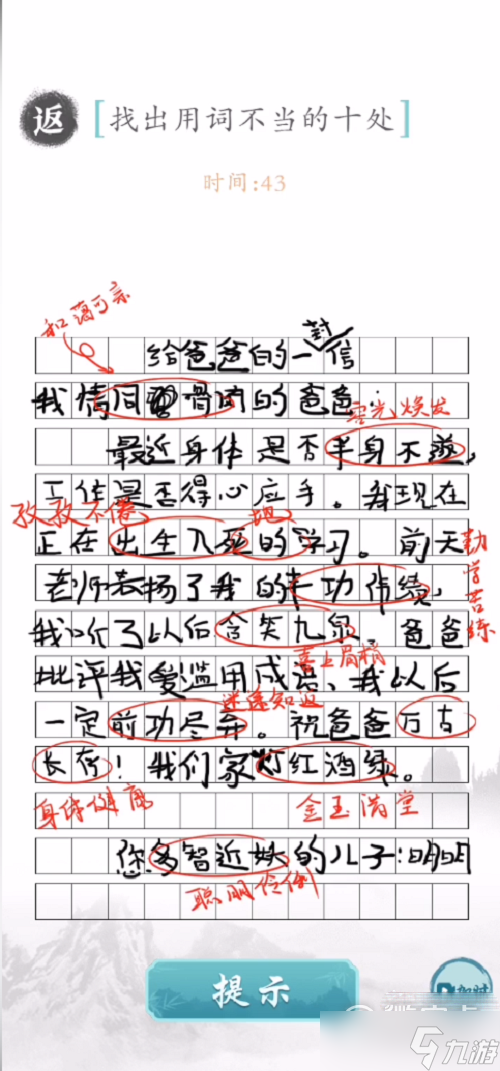 返
[找出用词不当的十处]
时间:43
和蔼可亲
封
给爸爸的一信
我情同骨肉的爸爸:
容光焕发
最近身体是否半身不遂,
工作是否得心应手。我现在
孜孜不倦
地
正在出生入死的学习。前天
勤学苦练
老师表扬了我的丰功伟绩,
我听了以后含笑九泉。爸爸
喜上眉梢
批评我爱滥用成语,我以后
迷途知返
一定前功尽弃。祝爸爸万古
长存!我们家灯红酒绿。
身体健康
金玉满堂
你多智近妖的儿子:明明
聪明伶俐
提示
九游